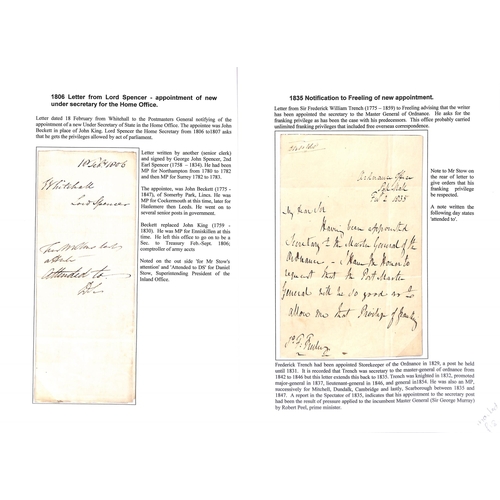 1806 Letter from Lord Spencer - appointment of new
under secretary for the Home Office.
Letter dated 18 February from Whitehall to the Postmasters General notifying of the
appointment of a new Under Secretary of State in the Home Office. The appointee was John
Beckett in place of John King. Lord Spencer the Home Secretary from 1806 to1807 asks
that he gets the privileges allowed by act of parliament.
Letter written by another (senior clerk)
and signed by George John Spencer, 2nd
Earl Spencer (1758 – 1834). He had been
MP for Northampton from 1780 to 1782
and then MP for Surrey 1782 to 1783.
The appointee, was John Beckett (1775 -
1847), of Somerby Park, Lincs. He was
MP for Cockermouth at this time, later for
Haslemere then Leeds. He went on to
several senior posts in government.
Beckett replaced John King (1759 -
1830). He was MP for Enniskillen at this
time. He left this office to go on to be a
Sec. to Treasury Feb.-Sept. 1806;
comptroller of army accts
Noted on the out side 'for Mr Stow's
attention' and 'Attended to DS' for Daniel
Stow, Superintending President of the
Inland Office.
1806
Whitehall
Lord Spencer
attended to
DS
1835 Notification to Freeling of new appointment.
Letter from Sir Frederick William Trench (1775 – 1859) to Freeling advising that the writer
has been appointed the secretary to the Master General of Ordnance. He asks for the
franking privilege as has been the case with his predecessors. This office probably carried
unlimited franking privileges that included free overseas correspondence.
Note to Mr Stow on
the rear of letter to
give orders that his
franking privilege
be respected.
A note written the
following day states
'attended to'.
Ordnance Office
1835
My dear Sir
Having been appointed
Secretary to the Master General of the
Ordnance – I have the Honor to
request that the Post Master
General will be so good as to
allow me that Privilege of franking
Sir F. Freeling
Frederick Trench had been appointed Storekeeper of the Ordnance in 1829, a post he held
until 1831. It is recorded that Trench was secretary to the master-general of ordnance from
1842 to 1846 but this letter extends this back to 1835. Trench was knighted in 1832, promoted
major-general in 1837, lieutenant-general in 1846, and general in1854. He was also an MP,
successively for Mitchell, Dundalk, Cambridge and lastly, Scarborough between 1835 and
1847. A report in the Spectator of 1835, indicates that his appointment to the secretary post
had been the result of pressure applied to the incumbent Master General (Sir George Murray)
by Robert Peel, prime minister.